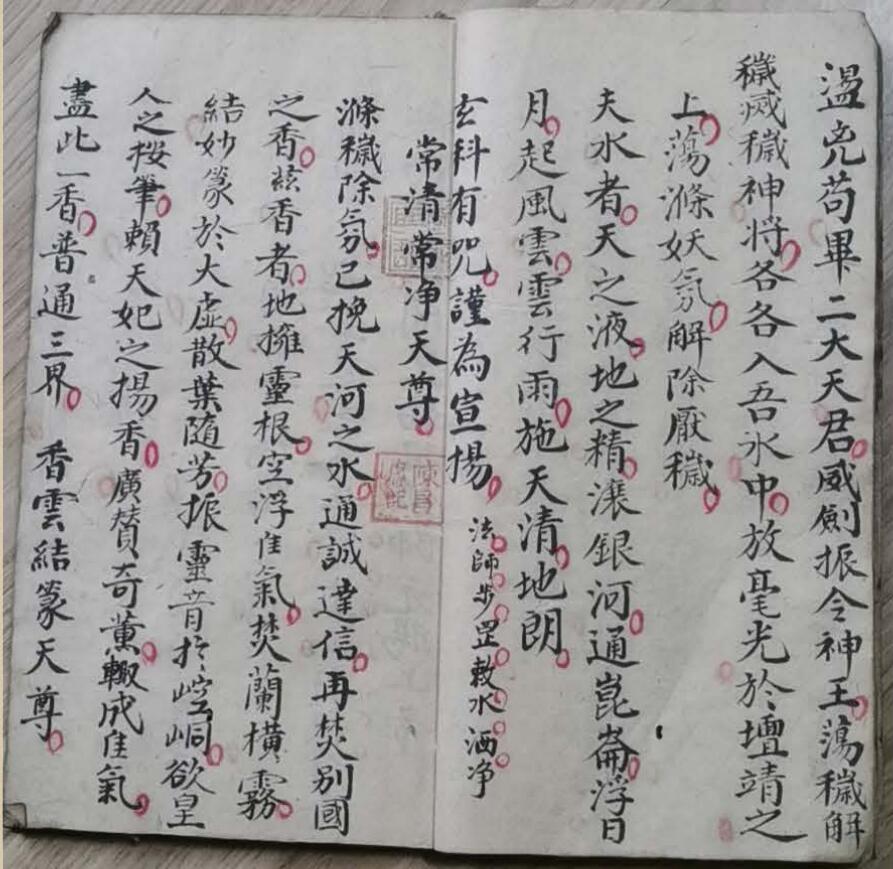 盪兇苟畢二大天君威劍振令神王蕩穢解
穢滅穢神將各各入吾水中放毫光於壇靖之
上蕩滌妖氛解除厭穢
夫水者天之液地之精滚銀河通崑崙浮日
月起風雲雲行雨施天清地朗
玄科有咒謹為宣揚 法師步罡敕水洒净
常清常净天尊
滌穢除氛已挽天河之水通誠達信再焚別國
之香玆香者地擁靈根空浮佳氣焚蘭橫霧
結妙篆於大虛散葉隨芳振靈音扵崆峒欲皇
人之桵筆賴天妃之揚香廣賛奇薰輙成佳氣
盡此一香普通三界 香雲結篆天尊